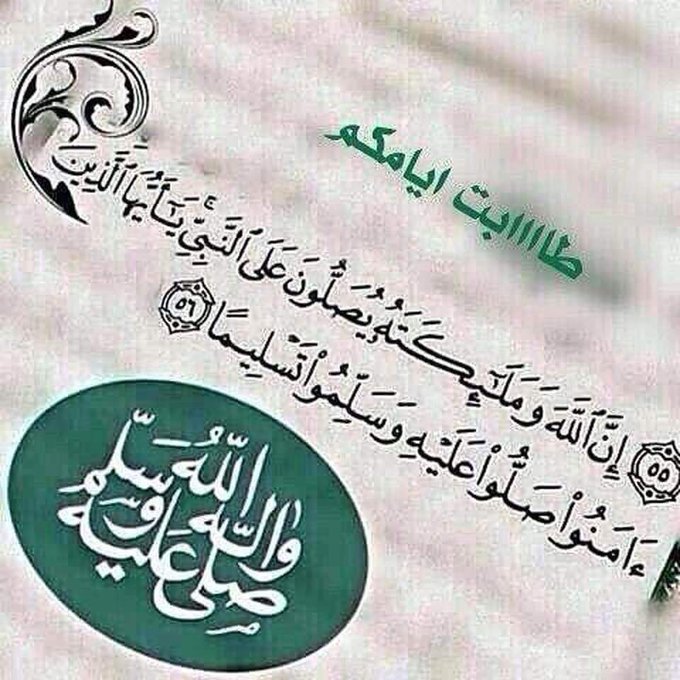 طاااابت ايامكم
۝٥٥ إِنَّ ٱللَّهَ وَمَلَـٰٓئِكَتَهُۥ يُصَلُّونَ عَلَى ٱلنَّبِىِّ ۚ يَـٰٓأَيُّهَا ٱلَّذِينَ
ءَامَنُوا۟ صَلُّوا۟ عَلَيْهِ وَسَلِّمُوا۟ تَسْلِيمًا ۝٥٦
صلى الله عليه واله وسلم